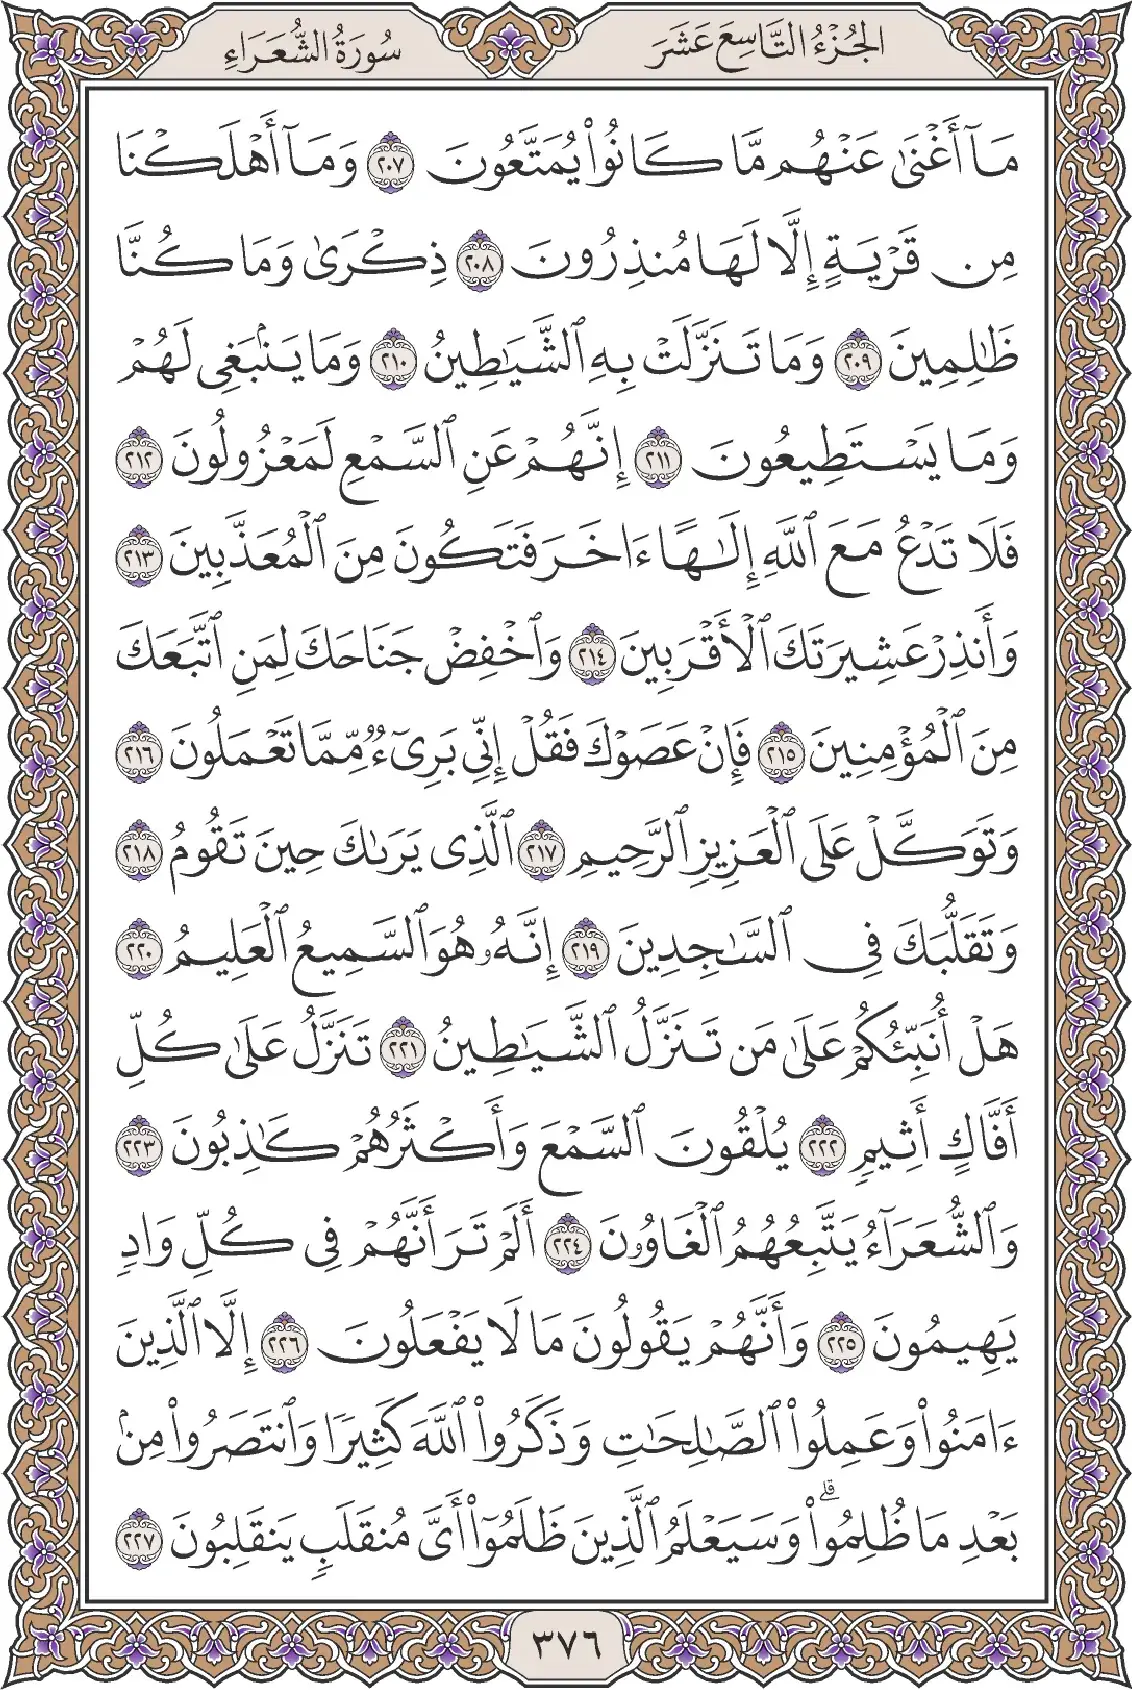 الجُزْءُ التَّاسِعَ عَشَرَ
سُورَةُ الشُّعَرَاءِ
مَآ أَغْنَىٰ عَنْهُم مَّا كَانُوا۟ يُمَتَّعُونَ ٢٠٧ وَمَآ أَهْلَكْنَا
مِن قَرْيَةٍ إِلَّا لَهَا مُنذِرُونَ ٢٠٨ ذِكْرَىٰ وَمَا كُنَّا
ظَٰلِمِينَ ٢٠٩ وَمَا تَنَزَّلَتْ بِهِ ٱلشَّيَٰطِينُ ٢١٠ وَمَا يَنۢبَغِى لَهُمْ
وَمَا يَسْتَطِيعُونَ ٢١١ إِنَّهُمْ عَنِ ٱلسَّمْعِ لَمَعْزُولُونَ ٢١٢
فَلَا تَدْعُ مَعَ ٱللَّهِ إِلَٰهًا ءَاخَرَ فَتَكُونَ مِنَ ٱلْمُعَذَّبِينَ ٢١٣
وَأَنذِرْ عَشِيرَتَكَ ٱلْأَقْرَبِينَ ٢١٤ وَٱخْفِضْ جَنَاحَكَ لِمَنِ ٱتَّبَعَكَ
مِنَ ٱلْمُؤْمِنِينَ ٢١٥ فَإِنْ عَصَوْكَ فَقُلْ إِنِّى بَرِىٓءٌ مِّمَّا تَعْمَلُونَ ٢١٦
وَتَوَكَّلْ عَلَى ٱلْعَزِيزِ ٱلرَّحِيمِ ٢١٧ ٱلَّذِى يَرَىٰكَ حِينَ تَقُومُ ٢١٨
وَتَقَلُّبَكَ فِى ٱلسَّٰجِدِينَ ٢١٩ إِنَّهُۥ هُوَ ٱلسَّمِيعُ ٱلْعَلِيمُ ٢٢٠
هَلْ أُنَبِّئُكُمْ عَلَىٰ مَن تَنَزَّلُ ٱلشَّيَٰطِينُ ٢٢١ تَنَزَّلُ عَلَىٰ كُلِّ
أَفَّاكٍ أَثِيمٍ ٢٢٢ يُلْقُونَ ٱلسَّمْعَ وَأَكْثَرُهُمْ كَٰذِبُونَ ٢٢٣
وَٱلشُّعَرَآءُ يَتَّبِعُهُمُ ٱلْغَاوُۥنَ ٢٢٤ أَلَمْ تَرَ أَنَّهُمْ فِى كُلِّ وَادٍ
يَهِيمُونَ ٢٢٥ وَأَنَّهُمْ يَقُولُونَ مَا لَا يَفْعَلُونَ ٢٢٦ إِلَّا ٱلَّذِينَ
ءَامَنُوا۟ وَعَمِلُوا۟ ٱلصَّٰلِحَٰتِ وَذَكَرُوا۟ ٱللَّهَ كَثِيرًا وَٱنتَصَرُوا۟ مِنۢ
بَعْدِ مَا ظُلِمُوا۟ ۗ وَسَيَعْلَمُ ٱلَّذِينَ ظَلَمُوٓا۟ أَىَّ مُنقَلَبٍ يَنقَلِبُونَ ٢٢٧
٣٧٦